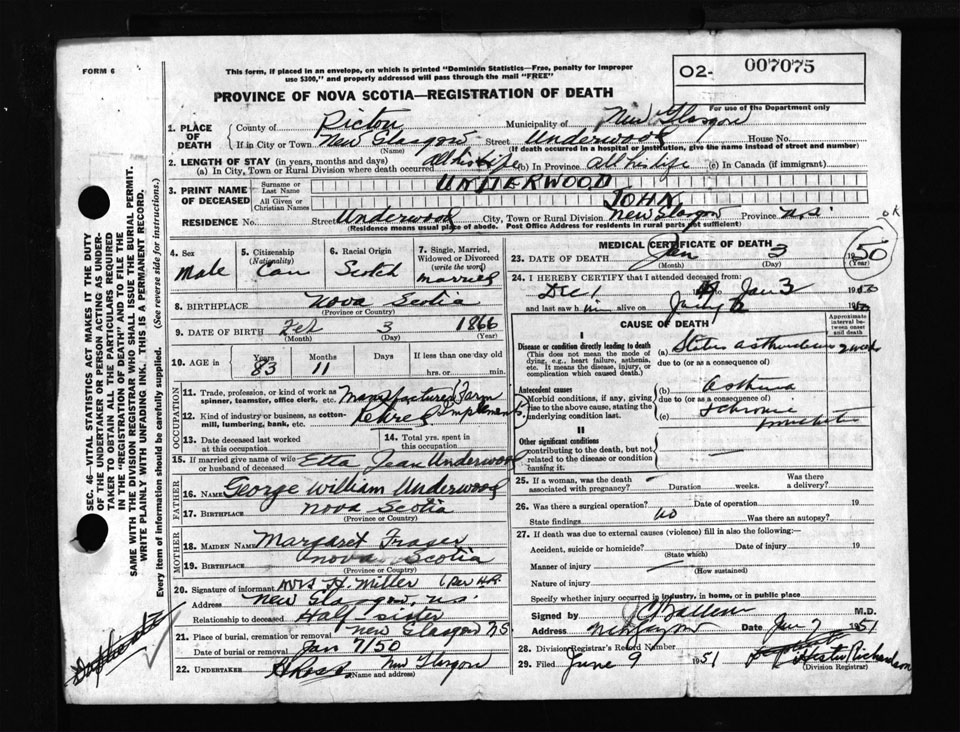 FORM 6
This form, if placed in an envelope, on which is printed "Dominion Statistics—Free, penalty for improper
use $300," and properly addressed will pass through the mail "FREE"
O2- 007075
For use of the Department only
PROVINCE OF NOVA SCOTIA—REGISTRATION OF DEATH
1. PLACE OF DEATH
County of Pictou Municipality of New Glasgow
If in City or Town New Glasgow Street Underwood House No.
(Name) (If death occurred in a hospital or institution, give the name instead of street and number)
2. LENGTH OF STAY (in years, months and days)
(a) In City, Town or Rural Division where death occurred All his life (b) In Province All his life (c) In Canada (if immigrant)
3. PRINT NAME OF DECEASED
Surname or Last Name UNDERWOOD
All Given or Christian Names JOHN
RESIDENCE No. Street Underwood City, Town or Rural Division New Glasgow Province N.S.
(Residence means usual place of abode. Post Office Address for residents in rural parts not sufficient)
4. Sex Male
5. Citizenship (Nationality) Can
6. Racial Origin Scotch
7. Single, Married, Widowed or Divorced (write the word) Married
8. BIRTHPLACE Nova Scotia
(Province or Country)
9. DATE OF BIRTH Feb 3 1866
(Month) (Day) (Year)
10. AGE in Years 83 Months 11 Days If less than one day old hrs. or min.
OCCUPATION
11. Trade, profession, or kind of work as spinner, teamster, office clerk, etc. Manufactured Farm
12. Kind of industry or business, as cotton-mill, lumbering, bank, etc. Retired Implements
13. Date deceased last worked at this occupation
14. Total yrs. spent in this occupation
15. If married give name of wife or husband of deceased Etta Jean Underwood
FATHER
16. NAME George William Underwood
17. BIRTHPLACE Nova Scotia
(Province or Country)
MOTHER
18. MAIDEN NAME Margaret Fraser
19. BIRTHPLACE Nova Scotia
(Province or Country)
20. Signature of informant Mrs H. Miller (Per H.R.
Address New Glasgow, N.S.
Relationship to deceased Half-sister
21. Place of burial, cremation or removal New Glasgow NS
Date of burial or removal Jan 7/50
22. UNDERTAKER New Glasgow
(Name and address)
MEDICAL CERTIFICATE OF DEATH
23. DATE OF DEATH Jan 3 50
(Month) (Day) (Year)
OK
24. I HEREBY CERTIFY that I attended deceased from:
Dec 1 Jan 3 1950
and last saw him alive on
CAUSE OF DEATH
Approximate interval between onset and death
I
Disease or condition directly leading to death
(This does not mean the mode of dying, e.g., heart failure, asthenia, etc. It means the disease, injury, or complication which caused death.)
(a) Status asthmaticus 2 weeks
due to (or as a consequence of)
Antecedent causes
Morbid conditions, if any, giving rise to the above cause, stating the underlying condition last.
(b) asthma
due to (or as a consequence of)
(c) chronic
II
Other significant conditions
contributing to the death, but not related to the disease or condition causing it.
25. If a woman, was the death associated with pregnancy? Duration weeks. Was there a delivery?
26. Was there a surgical operation? Date of operation 19
State findings no Was there an autopsy?
27. If death was due to external causes (violence) fill in also the following:
Accident, suicide or homicide? Date of injury 19
(State which)
Manner of injury
(How sustained)
Nature of injury
Specify whether injury occurred in industry, in home, or in public place
Signed by M.D.
Address Date 1951
28. Division Registrar's Record Number
29. Filed June 9 1951 Hester Richardson
(Division Registrar)
SEC. 46—VITAL STATISTICS ACT MAKES IT THE DUTY
OF THE UNDERTAKER OR PERSON ACTING AS UNDER-
TAKER TO OBTAIN ALL THE PARTICULARS REQUIRED
IN THE "REGISTRATION OF DEATH" AND TO FILE THE
SAME WITH THE DIVISION REGISTRAR WHO SHALL ISSUE THE BURIAL PERMIT.
WRITE PLAINLY WITH UNFADING INK. THIS IS A PERMANENT RECORD.
Every item of information should be carefully supplied. (See reverse side for instructions.)
Duplicate